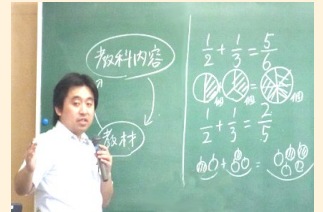 教科内容
教材
1/2 + 1/3 = 5/6
1/2 + 1/3 = 2/5